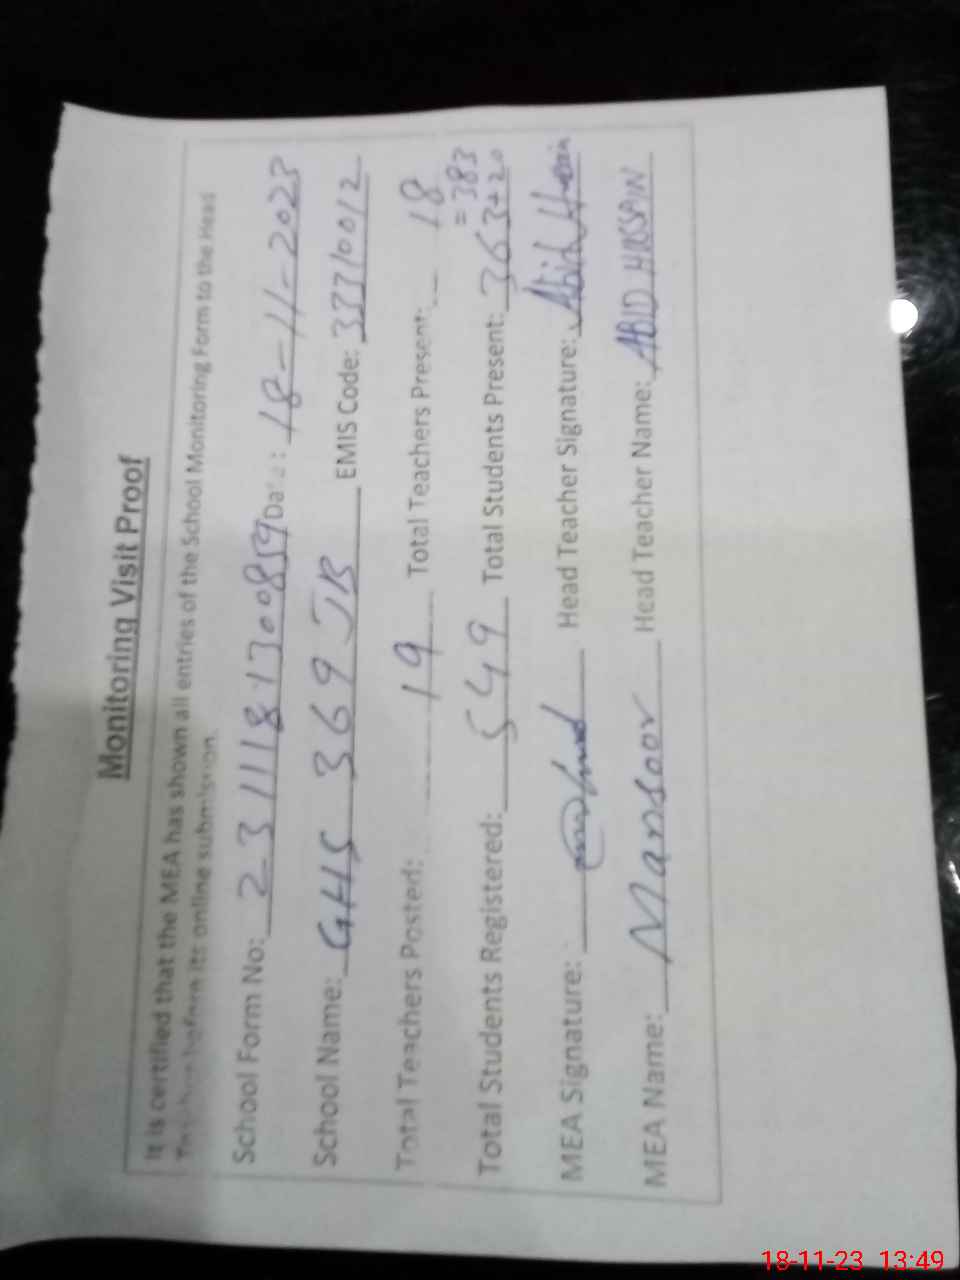 Monitoring Visit Proof
It is certified that the MEA has shown all entries of the School Monitoring Form to the Head
Teacher before its online submission.
School Form No: 2311181300859 Date: 18-11-2023
School Name: GHS 369 JB EMIS Code: 33310012
Total Teachers Posted: 19 Total Teachers Present: 18
= 383
Total Students Registered: 549 Total Students Present: 363+20
MEA Signature: Head Teacher Signature: Abid Hussain
MEA Name: Mansoor Head Teacher Name: ABID HUSSAIN
18-11-23 13:49